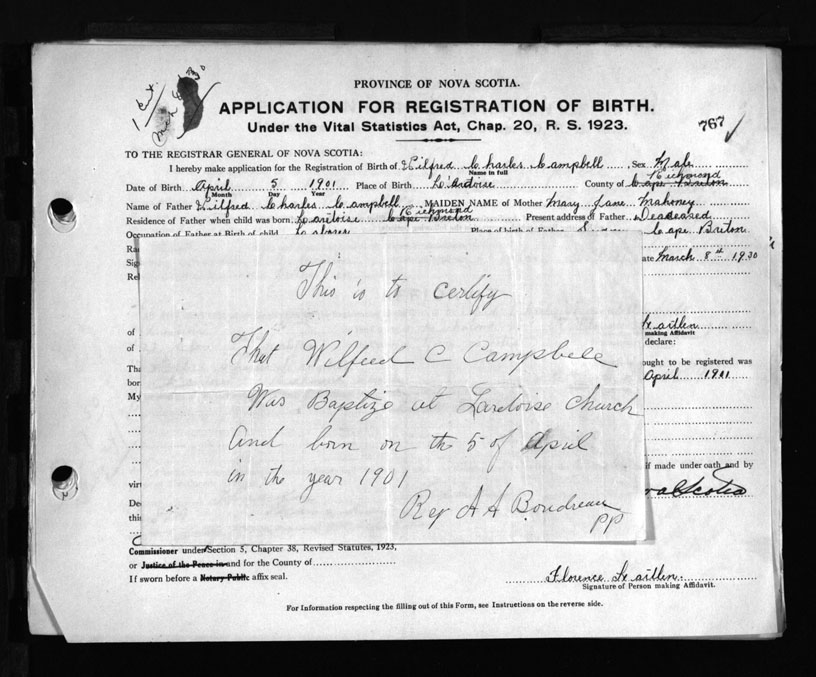 1 Cert.
PROVINCE OF NOVA SCOTIA.
APPLICATION FOR REGISTRATION OF BIRTH.
Under the Vital Statistics Act, Chap. 20, R. S. 1923.
767
TO THE REGISTRAR GENERAL OF NOVA SCOTIA:
I hereby make application for the Registration of Birth of Wilfred Charles Campbell Sex Male
Name in full
Richmond
Date of Birth April 5 1901 Place of Birth L'Ardoise County of Cape Breton
Month Day Year
Name of Father Wilfred Charles Campbell MAIDEN NAME of Mother Mary Jane Mahoney
Richmond
Residence of Father when child was born Lardoise Cape Breton Present address of Father Deceased
Occupation of Father at Birth of child Laborer Place of birth of Father Cape Breton
Ra
Sig ate March 8th 1930
Rel
aitlen
making Affidavit
of declare:
of
Tha ought to be registered was
bor April 1901
My
if made under oath and by
virt
Dec
this
This is to certify
That Wilfred C Campbell
Was Baptize at Lardoise Church
And born on the 5 of April
in the year 1901
Rev A A Boudreau
PP
Commissioner under Section 5, Chapter 38, Revised Statutes, 1923,
or Justice of the Peace in and for the County of
If sworn before a Notary Public affix seal.
Florence aitlen
Signature of Person making Affidavit.
For Information respecting the filling out of this Form, see Instructions on the reverse side.